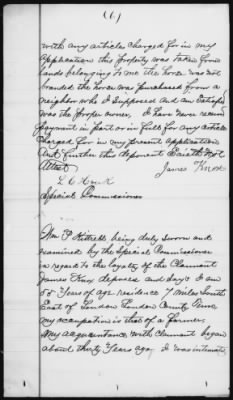 (6)
with any articles charged for in my
Application this property was taken from
lands belonging to me the horse was not
branded the horse was purchased from a
neighbor who I supposed and am satisfied
was the proper owner, I have never received
payment in part or in full for any article
Charged for in my present application
And further this deponent Saith Not
Attest James Knox
L C Houk
Special Commissioner
Wm P Kittrell being duly sworn and
examined by the Special Commissioner
in regard to the loyalty of the Claimant
James Knox deposes and says I am
55 Years of age residence 7 Miles South
East of Loudon Loudon County Tenn
my occupation is that of a farmer
My acquaintance with claimant began
about thirty Years ago, I was intimate